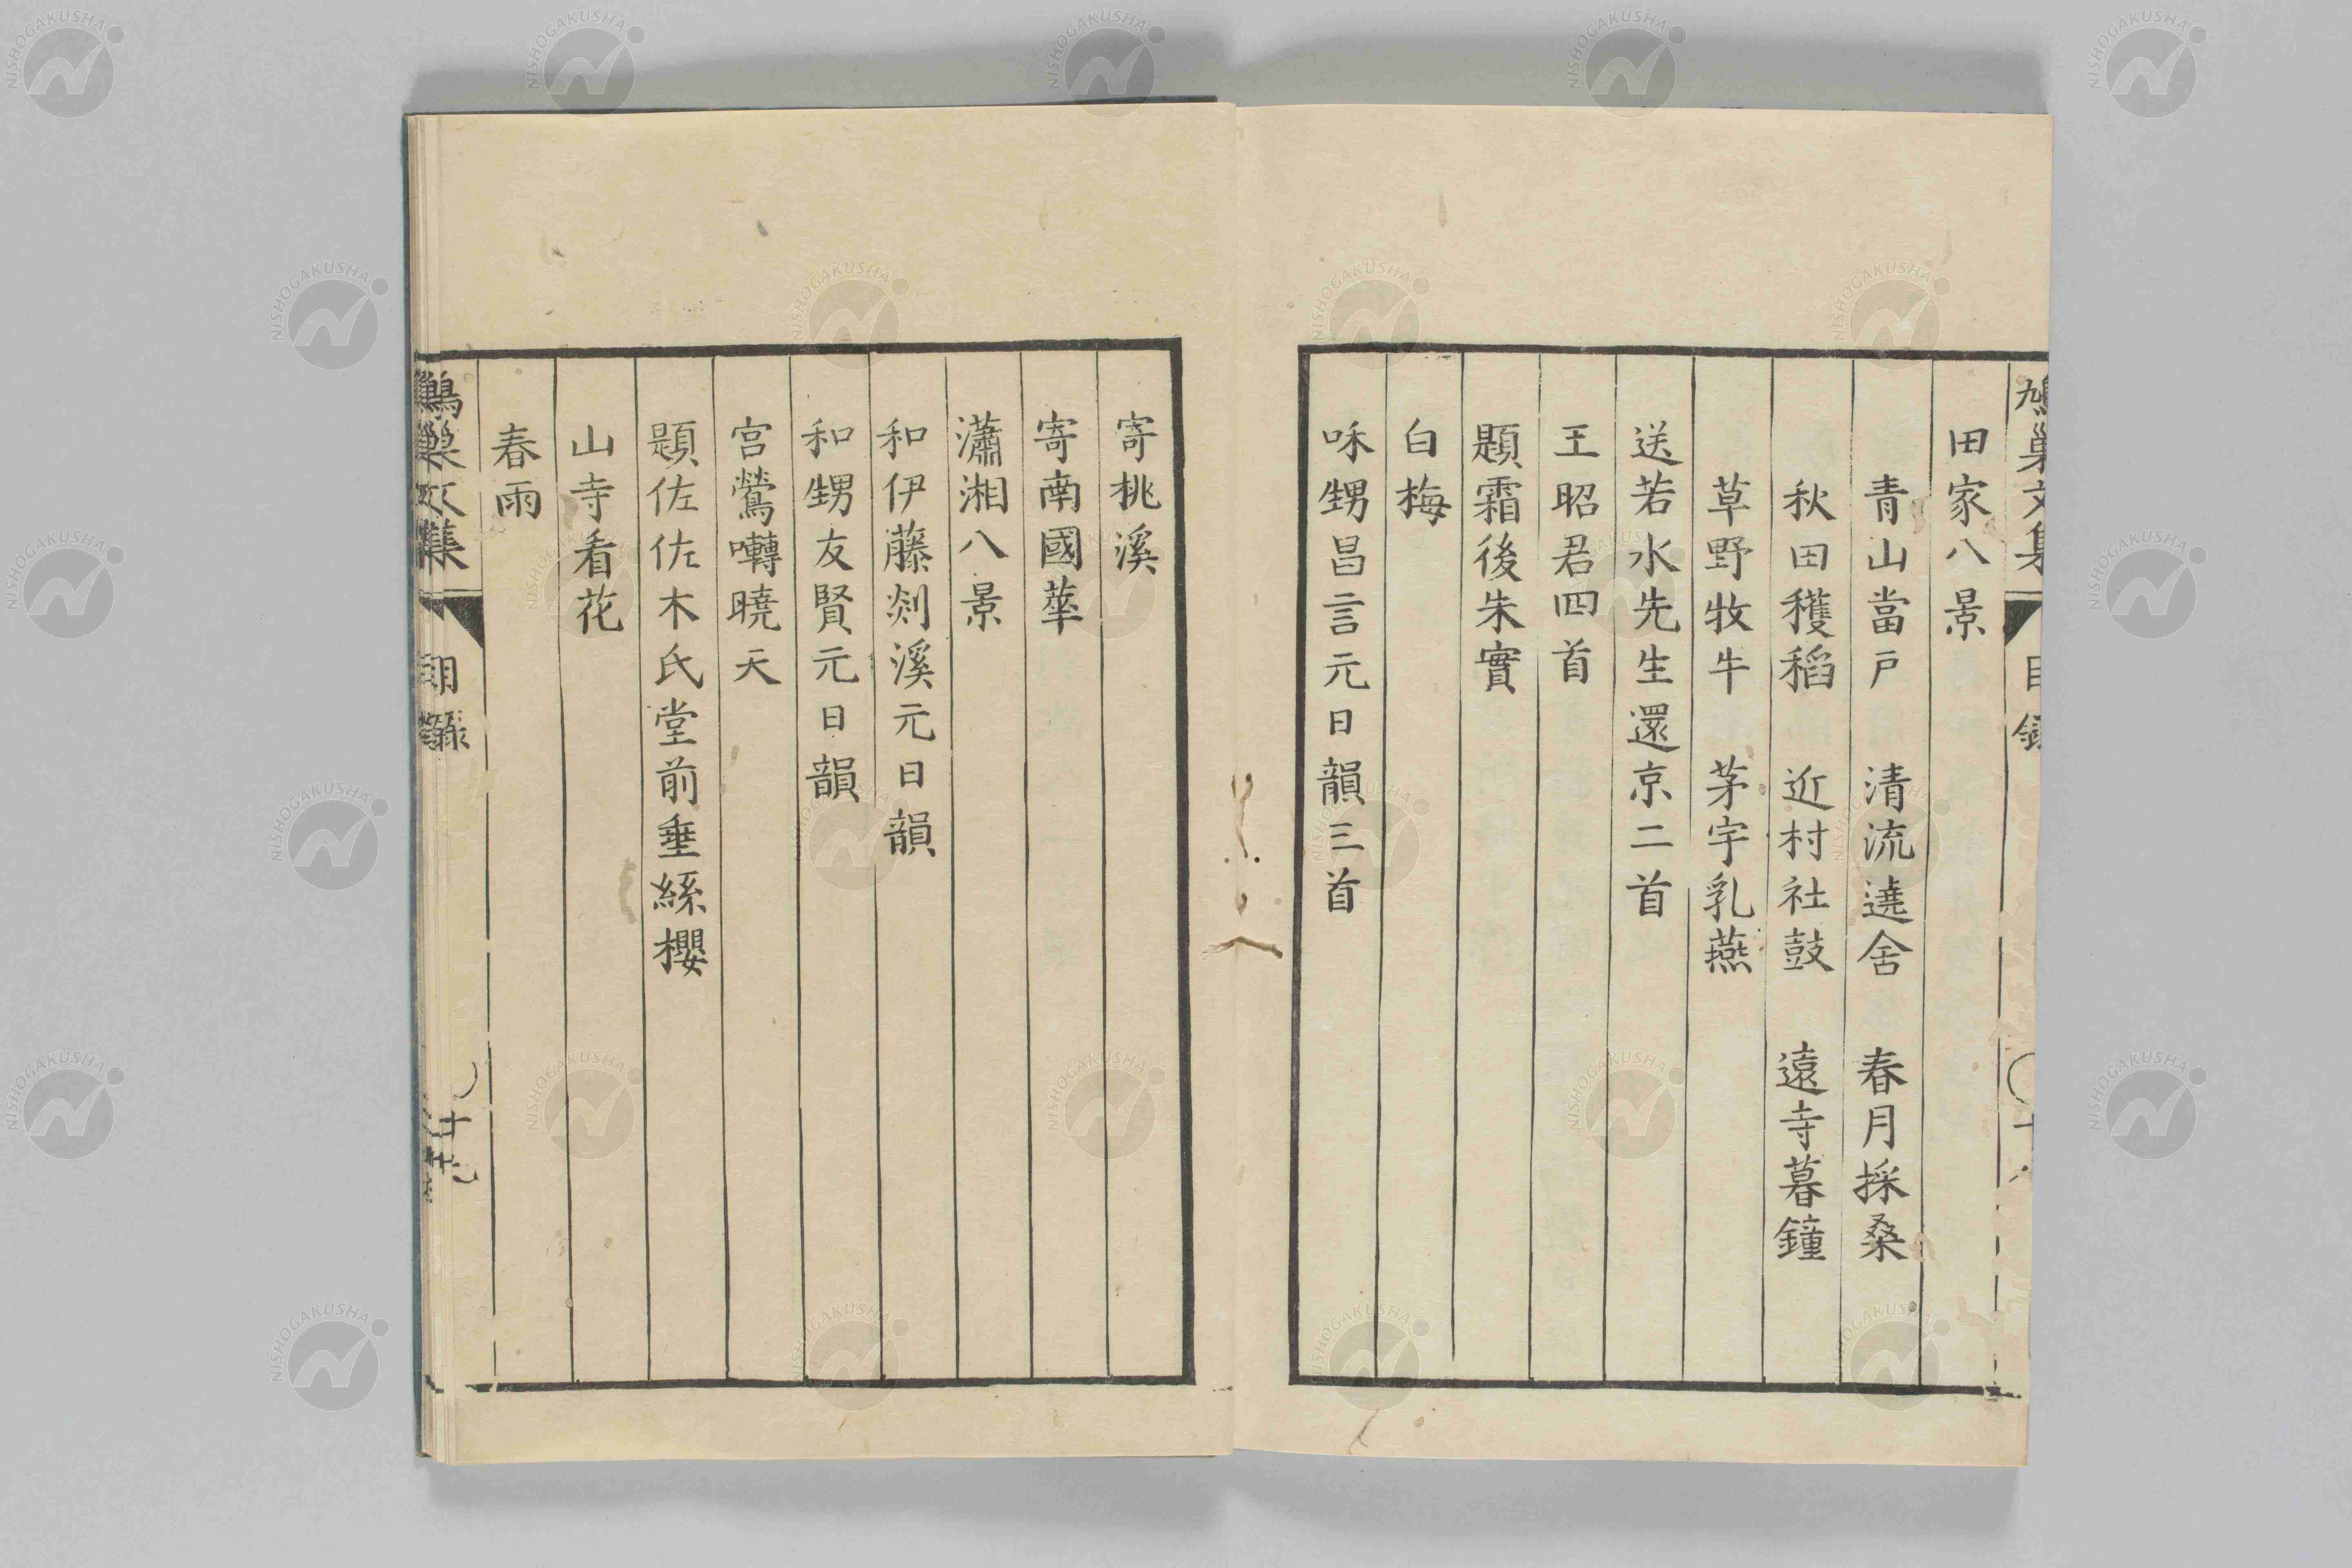 田家八景
青山當戸 清流遶舍 春月採桑
秋田穫稻 近村社鼓 遠寺暮鐘
草野牧牛 茅宇乳燕
送若水先生還京二首
王昭君四首
題霜後朱實
白梅
咊甥昌言元日韻三首
寄桃溪
寄南國華
瀟湘八景
和伊藤剡溪元日韻
和甥友賢元日韻
宮鶯囀曉天
題佐佐木氏堂前垂絲櫻
山寺看花
春雨
NISHOGAKUSHA